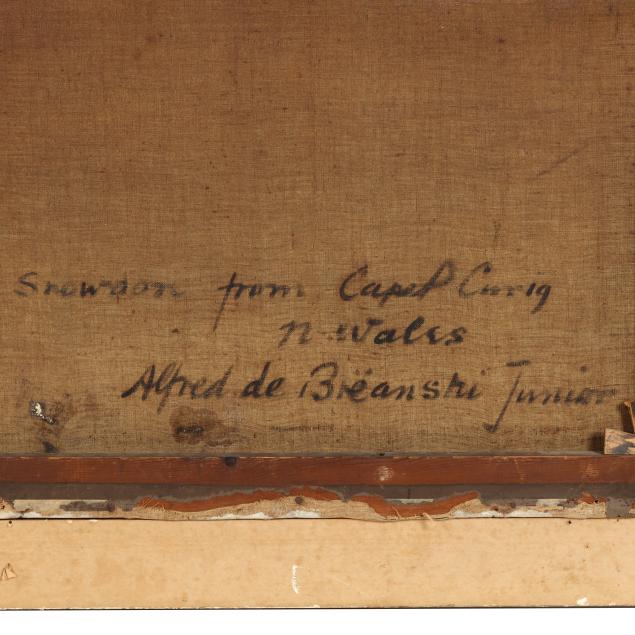 Snowdon from Capel Curig
N. Wales
Alfred de Brëanski Junior